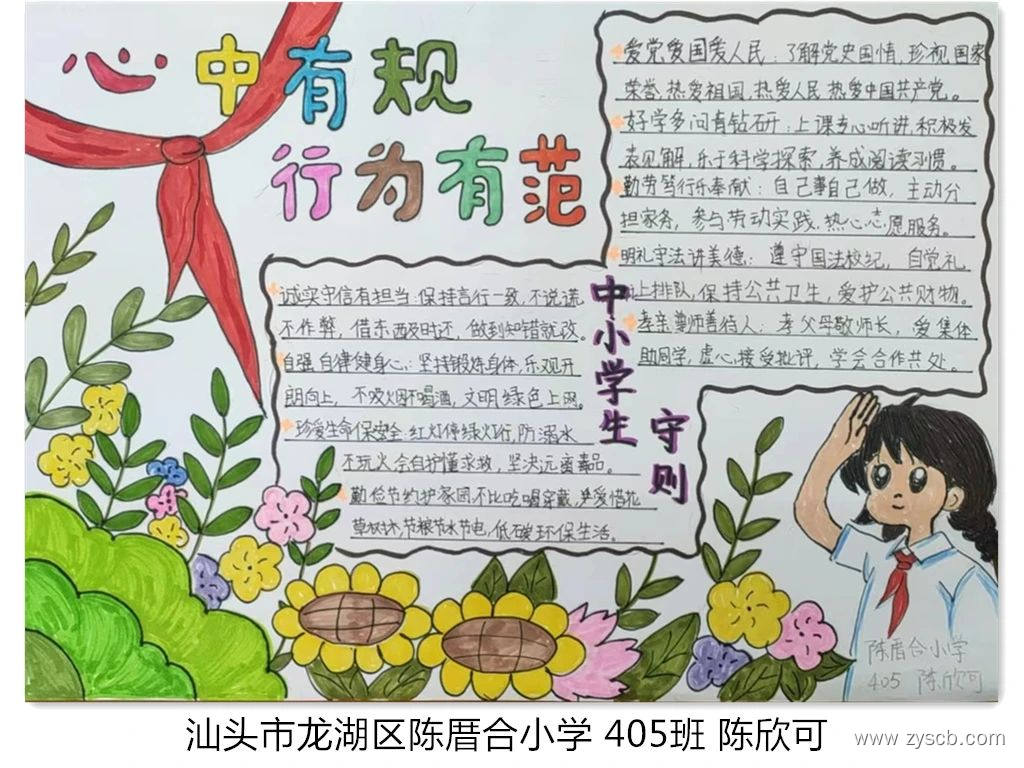 心中有规
行为有范
爱党爱国爱人民：了解党史国情，珍视国家
荣誉，热爱祖国，热爱人民，热爱中国共产党。
好学多问有钻研：上课专心听讲，积极发
表见解，乐于科学探索，养成阅读习惯。
勤劳笃行乐奉献：自己事自己做，主动分
担家务，参与劳动实践，热心志愿服务。
明礼守法讲美德：遵守国法校纪，自觉礼
让排队，保持公共卫生，爱护公共财物。
孝亲尊师善待人：孝父母敬师长，爱集体
助同学，虚心接受批评，学会合作共处。
诚实守信有担当：保持言行一致，不说谎
不作弊，借东西及时还，做到知错就改。
自强自律健身心：坚持锻炼身体，乐观开
朗向上，不吸烟不喝酒，文明绿色上网。
珍爱生命保安全：红灯停绿灯行，防溺水
不玩火会自护懂求救，坚决远离毒品。
勤俭节约护家园，不比吃喝穿戴，爱惜花
草树木，节粮节水节电，低碳环保生活。
中小学生
守则
陈厝合小学
405 陈欣可
汕头市龙湖区陈厝合小学 405班 陈欣可
www.zyscb.com